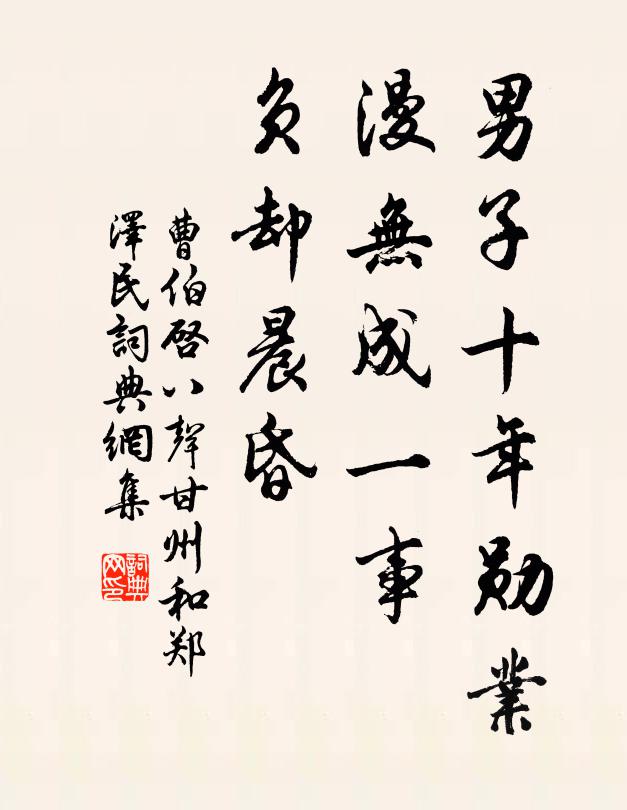 男子十年勋業
漫無成一事
负却晨昏
曹伯啓八聲甘州和郑
澤民詞典網集
詞典网印